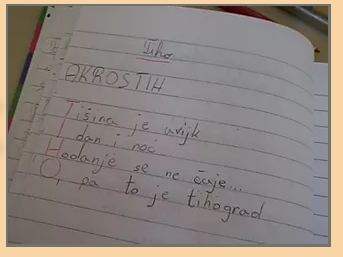 Tiho
AKROSTIH
Tišina je uvijk
I dan i noć.
Hodanje se ne čuje...
O, pa to je tihograd